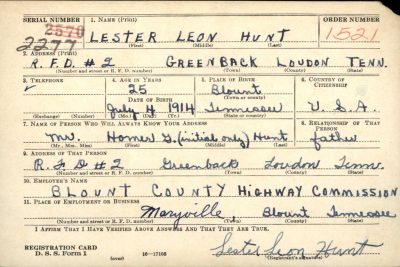 SERIAL NUMBER 1. NAME (Print) ORDER NUMBER
2570 LESTER LEON HUNT 1521
2277 (First) (Middle) (Last)
2. ADDRESS (Print)
R.F.D. #2 GREENBACK LOUDON TENN.
(Number and street or R. F. D. number) (Town) (County) (State)
3. TELEPHONE 4. AGE IN YEARS 5. PLACE OF BIRTH 6. COUNTRY OF CITIZENSHIP
25 Blount
DATE OF BIRTH (Town or county)
July 4 1914 Tennessee U.S.A.
(Exchange) (Number) (Mo.) (Day) (Yr.) (State or country)
7. NAME OF PERSON WHO WILL ALWAYS KNOW YOUR ADDRESS 8. RELATIONSHIP OF THAT PERSON
Mr. Homer G. (initial only) Hunt father
(Mr., Mrs., Miss) (First) (Middle) (Last)
9. ADDRESS OF THAT PERSON
R.F.D #2 Greenback Loudon Tenn.
(Number and street or R. F. D. number) (Town) (County) (State)
10. EMPLOYER'S NAME
BLOUNT COUNTY HIGHWAY COMMISSION
11. PLACE OF EMPLOYMENT OR BUSINESS
Maryville, Blount Tennessee
(Number and street or R. F. D. number) (Town) (County) (State)
I AFFIRM THAT I HAVE VERIFIED ABOVE ANSWERS AND THAT THEY ARE TRUE.
REGISTRATION CARD
D. S. S. Form 1 (over) 16—17105 Lester Leon Hunt
(Registrant's signature)